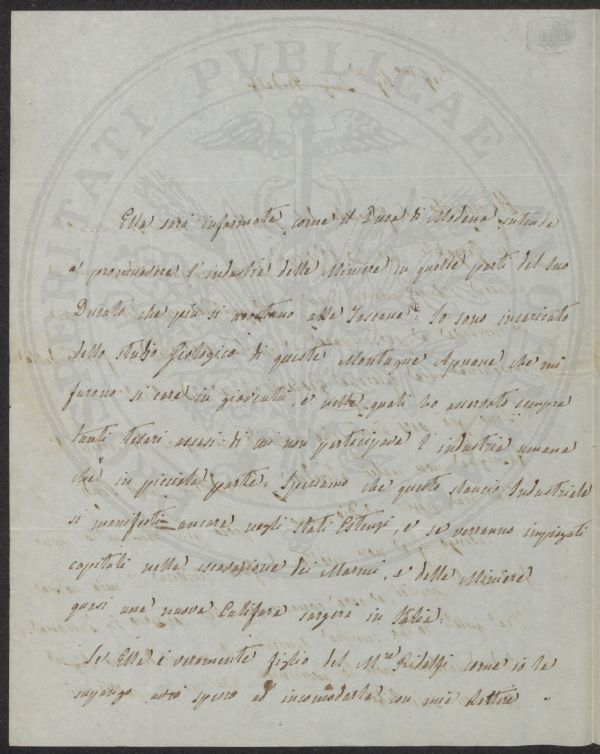 PROSPERITATI PVBLICAE
Ella sarà informata come il Duca di Modena intende
a promuovere l'industria delle Miniere in quelle parti del suo
Ducato che più si accostano alla Toscana. Io sono incaricato
dello studio Geologico di queste Montagne Apuane che mi
furono sì care in gioventù, e nelle quali ho osservato sempre
tanti tesori ascosi di cui non partecipava l'industria umana
che in piccola parte. Speriamo che questo slancio Industriale
si manifesti ancora negli Stati Estensi, e se verranno impiegati
capitali nella escavazione dei Marmi, e delle Miniere
quasi una nuova California sorgerà in Italia.
Se Ella è veramente figlio del M.se Ridolfi come io la
suppongo avrò spesso ad incomodarla con mie Lettere